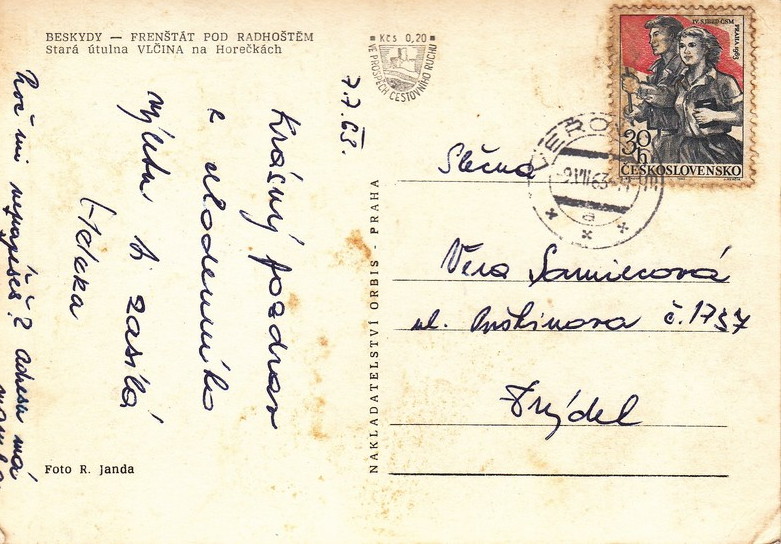 BESKYDY — FRENŠTÁT POD RADHOŠTĚM
Stará útulna VLČINA na Horečkách
Kčs 0,20
VE PROSPĚCH CESTOVNÍHO RUCHU
7.7.63.
Krásný pozdrav
z
výletu Ti zasílá
Helena
Proč mi nepíšeš? Adresu má
NAKLADATELSTVÍ ORBIS - PRAHA
IV. SJEZD ČSM
PRAHA 1963
30h
ČESKOSLOVENSKO
-9.VII.63
a
Slečna
Věra Samiecová
ul. Puškinova č. 1737
Frýdek
Foto R. Janda